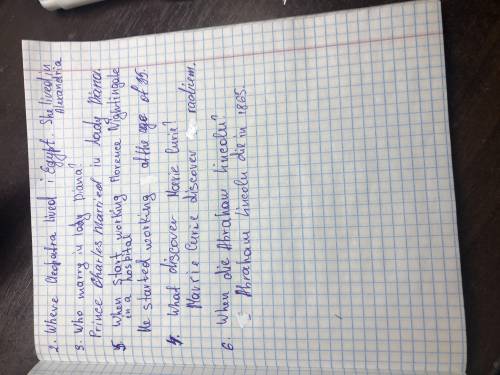 2. Where Cleopatra lived i Egypt. She lived in
Alexandria
3. Who marry is lady Diana?
Prince Charles Married is Lady Diana.
5. When start working Florence Nightingale
in a hospital
He started working at the age of 35.
4. What discover Marie Curie?
Mavrie Curie discover radiem.
6. When die Abraham Lincoln?
Abraham Lincoln die in 1865.